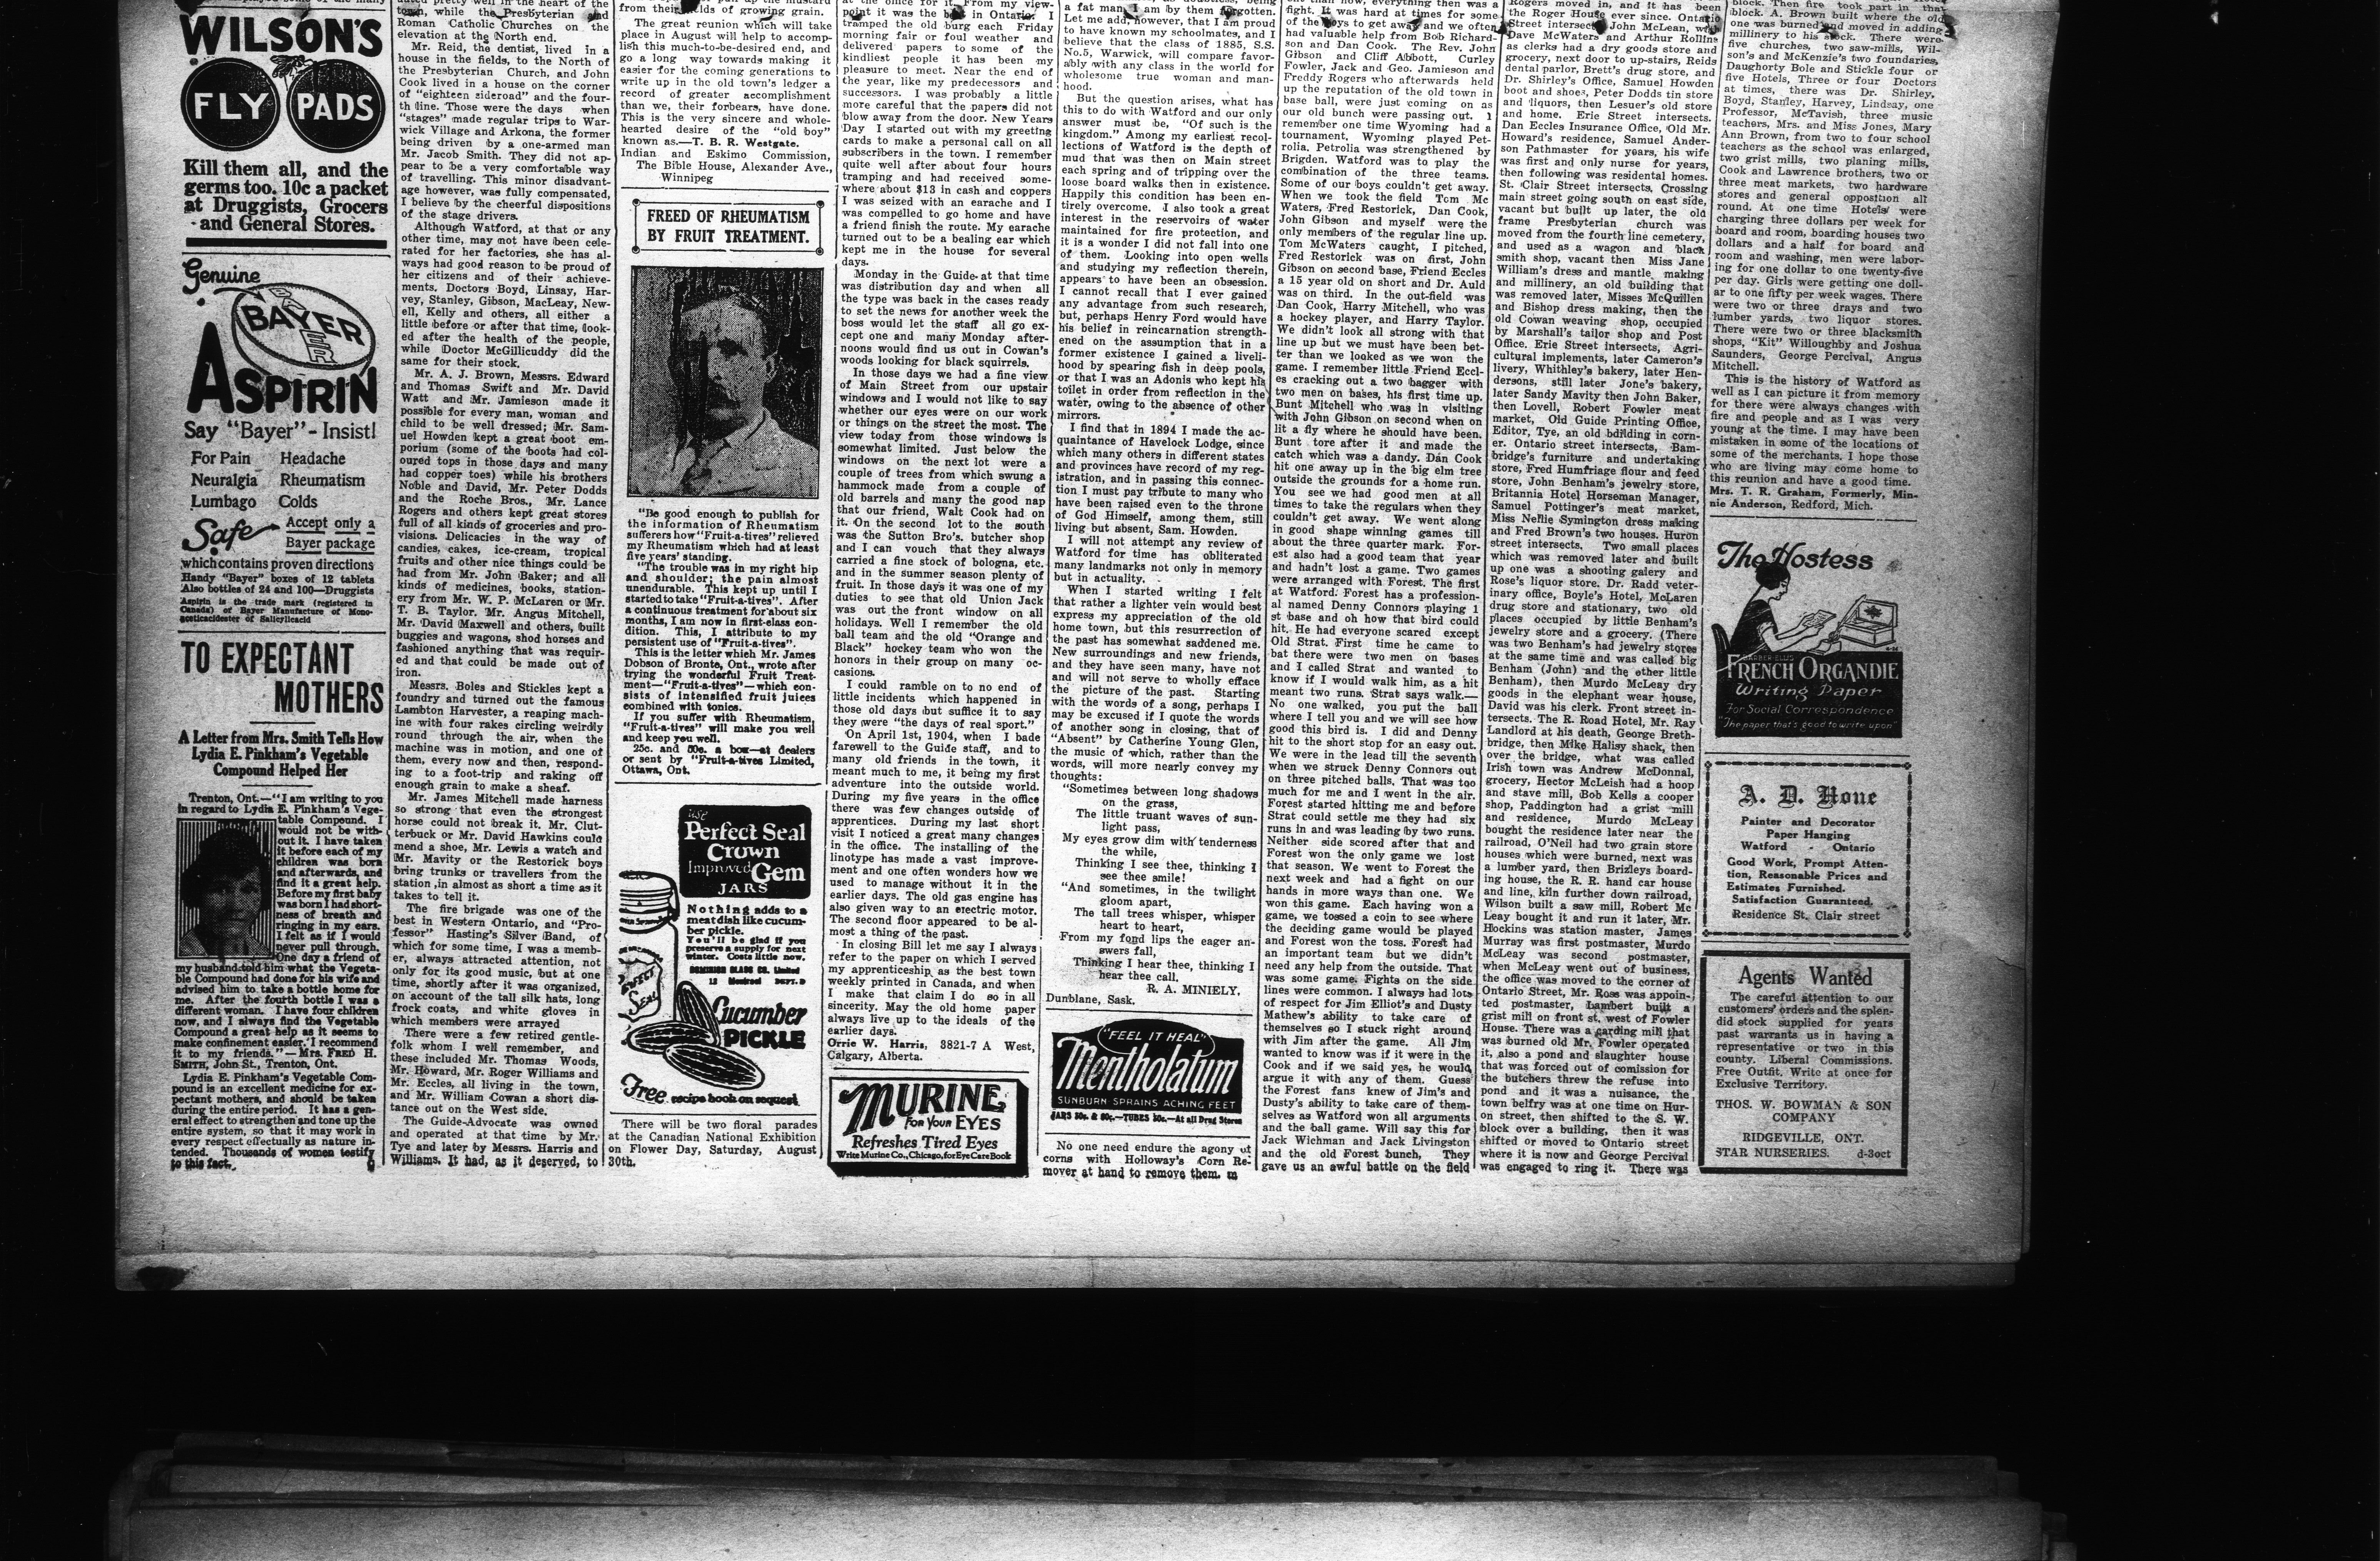 WILSON'S
FLY PADS
Kill them all, and the
germs too. 10c a packet
at Druggists, Grocers
and General Stores.
Genuine
BAYER
BAYER
ASPIRIN
Say "Bayer" - Insist!
For Pain Headache
Neuralgia Rheumatism
Lumbago Colds
Safe
Accept only a
Bayer package
which contains proven directions
Handy "Bayer" boxes of 12 tablets
Also bottles of 24 and 100—Druggists
Aspirin is the trade mark (registered in
Canada) of Bayer Manufacture of Mono-
aceticacidester of Salicylicacid
TO EXPECTANT
MOTHERS
A Letter from Mrs. Smith Tells How
Lydia E. Pinkham's Vegetable
Compound Helped Her
Trenton, Ont.—"I am writing to you
in regard to Lydia E. Pinkham's Vege-
table Compound. I
would not be with-
out it. I have taken
it before each of my
children was born
and afterwards, and
find it a great help.
Before my first baby
was born I had short-
ness of breath and
ringing in my ears.
I felt as if I would
never pull through.
One day a friend of
my husband told him what the Vegeta-
ble Compound had done for his wife and
advised him to take a bottle home for
me. After the fourth bottle I was a
different woman. I have four children
now, and I always find the Vegetable
Compound a great help as it seems to
make confinement easier. I recommend
it to my friends."—Mrs. FRED H.
SMITH, John St., Trenton, Ont.
Lydia E. Pinkham's Vegetable Com-
pound is an excellent medicine for ex-
pectant mothers, and should be taken
during the entire period. It has a gen-
eral effect to strengthen and tone up the
entire system, so that it may work in
every respect effectually as nature in-
tended. Thousands of women testify
to this fact.
town, while the Presbyterian and
Roman Catholic Churches on the
elevation at the North end.
Mr. Reid, the dentist, lived in a
house in the fields, to the North of
the Presbyterian Church, and John
Cook lived in a house on the corner
of "eighteen sideroad" and the four-
th line. Those were the days when
"stages" made regular trips to War-
wick Village and Arkona, the former
being driven by a one-armed man
Mr. Jacob Smith. They did not ap-
pear to be a very comfortable way
of travelling. This minor disadvant-
age however, was fully compensated,
I believe by the cheerful dispositions
of the stage drivers.
Although Watford, at that or any
other time, may not have been cele-
rated for her factories, she has al-
ways had good reason to be proud of
her citizens and of their achieve-
ments. Doctors Boyd, Linsay, Har-
vey, Stanley, Gibson, MacLeay, New-
ell, Kelly and others, all either a
little before or after that time, look-
ed after the health of the people,
while Doctor McGillicuddy did the
same for their stock.
Mr. A. J. Brown, Messrs. Edward
and Thomas Swift and Mr. David
Watt and Mr. Jamieson made it
possible for every man, woman and
child to be well dressed; Mr. Sam-
uel Howden kept a great boot em-
porium (some of the boots had col-
oured tops in those days and many
had copper toes) while his brothers
Noble and David, Mr. Peter Dodds
and the Roche Bros., Mr. Lance
Rogers and others kept great stores
full of all kinds of groceries and pro-
visions. Delicacies in the way of
candies, cakes, ice-cream, tropical
fruits and other nice things could be
had from Mr. John Baker; and all
kinds of medicines, books, station-
ery from Mr. W. P. McLaren or Mr.
T. B. Taylor. Mr. Angus Mitchell,
Mr. David Maxwell and others, built
buggies and wagons, shod horses and
fashioned anything that was requir-
ed and that could be made out of
iron.
Messrs. Boles and Stickles kept a
foundry and turned out the famous
Lambton Harvester, a reaping mach-
ine with four rakes circling weirdly
round through the air, when the
machine was in motion, and one of
them, every now and then, respond-
ing to a foot-trip and raking off
enough grain to make a sheaf.
Mr. James Mitchell made harness
so strong that even the strongest
horse could not break it. Mr. Clut-
terbuck or Mr. David Hawkins could
mend a shoe, Mr. Lewis a watch and
Mr. Mavity or the Restorick boys
bring trunks or travellers from the
station in almost as short a time as it
takes to tell it.
The fire brigade was one of the
best in Western Ontario, and "Pro-
fessor" Hasting's Silver Band, of
which for some time, I was a memb-
er, always attracted attention, not
only for its good music, but at one
time, shortly after it was organized,
on account of the tall silk hats, long
frock coats, and white gloves in
which members were arrayed
There were a few retired gentle-
folk whom I well remember, and
these included Mr. Thomas Woods,
Mr. Howard, Mr. Roger Williams and
Mr. Eccles, all living in the town,
and Mr. William Cowan a short dis-
tance out on the West side.
The Guide-Advocate was owned
and operated at that time by Mr.
Tye and later by Messrs. Harris and
Williams. It had, as it deserved, to
from their fields of growing grain.
The great reunion which will take
place in August will help to accomp-
lish this much-to-be-desired end, and
go a long way towards making it
easier for the coming generations to
write up in the old town's ledger a
record of greater accomplishment
than we, their forbears, have done.
This is the very sincere and whole-
hearted desire of the "old boy"
known as.—T. B. R. Westgate.
Indian and Eskimo Commission,
The Bible House, Alexander Ave.,
Winnipeg
FREED OF RHEUMATISM
BY FRUIT TREATMENT.
"Be good enough to publish for
the information of Rheumatism
sufferers how "Fruit-a-tives" relieved
my Rheumatism which had at least
five years' standing.
"The trouble was in my right hip
and shoulder; the pain almost
unendurable. This kept up until I
started to take "Fruit-a-tives". After
a continuous treatment for about six
months, I am now in first-class con-
dition. This, I attribute to my
persistent use of "Fruit-a-tives".
This is the letter which Mr. James
Dobson of Bronte, Ont., wrote after
trying the wonderful Fruit Treat-
ment—"Fruit-a-tives"—which con-
sists of intensified fruit juices
combined with tonics.
If you suffer with Rheumatism,
"Fruit-a-tives" will make you well
and keep you well.
25c. and 50c. a box—at dealers
or sent by "Fruit-a-tives Limited,
Ottawa, Ont.
Use
Perfect Seal
Crown
Improved Gem
JARS
Nothing adds to a
meat dish like cucum-
ber pickle.
You'll be glad if you
preserve a supply for next
winter. Costs little now.
DOMINION GLASS CO. Limited
12 Montreal DEPT. D
SWEET
SEAL
Cucumber
PICKLE
Free recipe book on request
There will be two floral parades
at the Canadian National Exhibition
on Flower Day, Saturday, August
30th.
at the office for it. From my view-
point it was the best in Ontario. I
tramped the old burg each Friday
morning fair or foul weather and
delivered papers to some of the
kindliest people it has been my
pleasure to meet. Near the end of
the year, like my predecessors and
successors. I was probably a little
more careful that the papers did not
blow away from the door. New Years
Day I started out with my greeting
cards to make a personal call on all
subscribers in the town. I remember
quite well after about four hours
tramping and had received some-
where about $13 in cash and coppers
I was seized with an earache and I
was compelled to go home and have
a friend finish the route. My earache
turned out to be a bealing ear which
kept me in the house for several
days.
Monday in the Guide at that time
was distribution day and when all
the type was back in the cases ready
to set the news for another week the
boss would let the staff all go ex-
cept one and many Monday after-
noons would find us out in Cowan's
woods looking for black squirrels.
In those days we had a fine view
of Main Street from our upstair
windows and I would not like to say
whether our eyes were on our work
or things on the street the most. The
view today from those windows is
somewhat limited. Just below the
windows on the next lot were a
couple of trees from which swung a
hammock made from a couple of
old barrels and many the good nap
that our friend, Walt Cook had on
it. On the second lot to the south
was the Sutton Bro's. butcher shop
and I can vouch that they always
carried a fine stock of bologna, etc.
and in the summer season plenty of
fruit. In those days it was one of my
duties to see that old Union Jack
was out the front window on all
holidays. Well I remember the old
ball team and the old "Orange and
Black" hockey team who won the
honors in their group on many oc-
casions.
I could ramble on to no end of
little incidents which happened in
those old days but suffice it to say
they were "the days of real sport."
On April 1st, 1904, when I bade
farewell to the Guide staff, and to
many old friends in the town, it
meant much to me, it being my first
adventure into the outside world.
During my five years in the office
there was few changes outside of
apprentices. During my last short
visit I noticed a great many changes
in the office. The installing of the
linotype has made a vast improve-
ment and one often wonders how we
used to manage without it in the
earlier days. The old gas engine has
also given way to an electric motor.
The second floor appeared to be al-
most a thing of the past.
In closing Bill let me say I always
refer to the paper on which I served
my apprenticeship as the best town
weekly printed in Canada, and when
I make that claim I do so in all
sincerity. May the old home paper
always live up to the ideals of the
earlier days.
Orrie W. Harris, 3821-7 A West,
Calgary, Alberta.
MURINE
FOR YOUR EYES
Refreshes Tired Eyes
Write Murine Co., Chicago, for Eye Care Book
a fat man, I am by them forgotten.
Let me add, however, that I am proud
to have known my schoolmates, and I
believe that the class of 1885, S.S.
No.5, Warwick, will compare favor-
ably with any class in the world for
wholesome true woman and man-
hood.
But the question arises, what has
this to do with Watford and our only
answer must be, "Of such is the
kingdom." Among my earliest recol-
lections of Watford is the depth of
mud that was then on Main street
each spring and of tripping over the
loose board walks then in existence.
Happily this condition has been en-
tirely overcome. I also took a great
interest in the reservoirs of water
maintained for fire protection, and
it is a wonder I did not fall into one
of them. Looking into open wells
and studying my reflection therein,
appears to have been an obsession.
I cannot recall that I ever gained
any advantage from such research,
but, perhaps Henry Ford would have
his belief in reincarnation strength-
ened on the assumption that in a
former existence I gained a liveli-
hood by spearing fish in deep pools,
or that I was an Adonis who kept his
toilet in order from reflection in the
water, owing to the absence of other
mirrors.
I find that in 1894 I made the ac-
quaintance of Havelock Lodge, since
which many others in different states
and provinces have record of my reg-
istration, and in passing this connec-
tion I must pay tribute to many who
have been raised even to the throne
of God Himself, among them, still
living but absent, Sam. Howden.
I will not attempt any review of
Watford for time has obliterated
many landmarks not only in memory
but in actuality.
When I started writing I felt
that rather a lighter vein would best
express my appreciation of the old
home town, but this resurrection of
the past has somewhat saddened me.
New surroundings and new friends,
and they have seen many, have not
and will not serve to wholly efface
the picture of the past. Starting
with the words of a song, perhaps I
may be excused if I quote the words
of another song in closing, that of
"Absent" by Catherine Young Glen,
the music of which, rather than the
words, will more nearly convey my
thoughts:
"Sometimes between long shadows
on the grass,
The little truant waves of sun-
light pass,
My eyes grow dim with tenderness
the while,
Thinking I see thee, thinking I
see thee smile!
"And sometimes, in the twilight
gloom apart,
The tall trees whisper, whisper
heart to heart,
From my fond lips the eager an-
swers fall,
Thinking I hear thee, thinking I
hear thee call.
R. A. MINIELY.
Dunblane, Sask.
"FEEL IT HEAL"
Mentholatum
SUNBURN-SPRAINS ACHING FEET
JARS 30c. & 60c.—TUBES 30c.—At all Drug Stores
No one need endure the agony of
corns with Holloway's Corn Re-
mover at hand to remove them. m
fight. It was hard at times for some
of the boys to get away and we often
had valuable help from Bob Richard-
son and Dan Cook. The Rev. John
Gibson and Cliff Abbott, Curley
Fowler, Jack and Geo. Jamieson and
Freddy Rogers who afterwards held
up the reputation of the old town in
base ball, were just coming on as
our old bunch were passing out. I
remember one time Wyoming had a
tournament. Wyoming played Pet-
rolia. Petrolia was strengthened by
Brigden. Watford was to play the
combination of the three teams.
Some of our boys couldn't get away.
When we took the field Tom Mc
Waters, Fred Restorick, Dan Cook,
John Gibson and myself were the
only members of the regular line up.
Tom McWaters caught, I pitched,
Fred Restorick was on first, John
Gibson on second base, Friend Eccles
a 15 year old on short and Dr. Auld
was on third. In the out-field was
Dan Cook, Harry Mitchell, who was
a hockey player, and Harry Taylor.
We didn't look all strong with that
line up but we must have been bet-
ter than we looked as we won the
game. I remember little Friend Eccl-
es cracking out a two bagger with
two men on bases, his first time up.
Bunt Mitchell who was in visiting
with John Gibson on second when on
lit a fly where he should have been.
Bunt tore after it and made the
catch which was a dandy. Dan Cook
hit one away up in the big elm tree
outside the grounds for a home run.
You see we had good men at all
times to take the regulars when they
couldn't get away. We went along
in good shape winning games till
about the three quarter mark. For-
est also had a good team that year
and hadn't lost a game. Two games
were arranged with Forest. The first
at Watford. Forest has a profession-
al named Denny Connors playing 1
st base and oh how that bird could
hit. He had everyone scared except
Old Strat. First time he came to
bat there were two men on bases
and I called Strat and wanted to
know if I would walk him, as a hit
meant two runs. Strat says walk.—
No one walked, you put the ball
where I tell you and we will see how
good this bird is. I did and Denny
hit to the short stop for an easy out.
We were in the lead till the seventh
when we struck Denny Connors out
on three pitched balls. That was too
much for me and I went in the air.
Forest started hitting me and before
Strat could settle me they had six
runs in and was leading by two runs.
Neither side scored after that and
Forest won the only game we lost
that season. We went to Forest the
next week and had a fight on our
hands in more ways than one. We
won this game. Each having won a
game, we tossed a coin to see where
the deciding game would be played
and Forest won the toss. Forest had
an important team but we didn't
need any help from the outside. That
was some game. Fights on the side
lines were common. I always had lots
of respect for Jim Elliot's and Dusty
Mathew's ability to take care of
themselves so I stuck right around
with Jim after the game. All Jim
wanted to know was if it were in the
Cook and if we said yes, he would
argue it with any of them. Guess
the Forest fans knew of Jim's and
Dusty's ability to take care of them-
selves as Watford won all arguments
and the ball game. Will say this for
Jack Wichman and Jack Livingston
and the old Forest bunch, They
gave us an awful battle on the field
Rogers moved in, and it has been
the Roger House ever since. Ontario
Street intersects, John McLean, with
Dave McWaters and Arthur Rollins
as clerks had a dry goods store and
grocery, next door to up-stairs, Reids
dental parlor, Brett's drug store, and
Dr. Shirley's Office, Samuel Howden
boot and shoes, Peter Dodds tin store
and liquors, then Lesuer's old store
and home. Erie Street intersects.
Dan Eccles Insurance Office, Old Mr.
Howard's residence, Samuel Ander-
son Pathmaster for years, his wife
was first and only nurse for years,
then following was residental homes.
St. Clair Street intersects, Crossing
main street going south on east side,
vacant but built up later, the old
frame Presbyterian church was
moved from the fourth line cemetery,
and used as a wagon and black
smith shop, vacant then Miss Jane
William's dress and mantle making
and millinery, an old building that
was removed later, Misses McQuillen
and Bishop dress making, then the
old Cowan weaving shop, occupied
by Marshall's tailor shop and Post
Office. Erie Street intersects, Agri-
cultural implements, later Cameron's
livery, Whithley's bakery, later Hen-
dersons, still later Jone's bakery,
later Sandy Mavity then John Baker,
then Lovell, Robert Fowler meat
market, Old Guide Printing Office,
Editor, Tye, an old bdilding in corn-
er. Ontario street intersects, Bam-
bridge's furniture and undertaking
store, Fred Humfriage flour and feed
store, John Benham's jewelry store,
Britannia Hotel Horseman Manager,
Samuel Pottinger's meat market,
Miss Nellie Symington dress making
and Fred Brown's two houses. Huron
street intersects. Two small places
which was removed later and built
up one was a shooting galery and
Rose's liquor store. Dr. Radd veter-
inary office, Boyle's Hotel, McLaren
drug store and stationary, two old
places occupied by little Benham's
jewelry store and a grocery. (There
was two Benham's had jewelry stores
at the same time and was called big
Benham (John) and the other little
Benham), then Murdo McLeay dry
goods in the elephant wear house,
David was his clerk. Front street in-
tersects. The R. Road Hotel, Mr. Ray
Landlord at his death, George Breth-
bridge, then Mike Halisy shack, then
over the bridge, what was called
Irish town was Andrew McDonnal,
grocery, Hector McLeish had a hoop
and stave mill, Bob Kells a cooper
shop, Paddington had a grist mill
and residence, Murdo McLeay
bought the residence later near the
railroad, O'Neil had two grain store
houses which were burned, next was
a lumber yard, then Brizleys board-
ing house, the R. R. hand car house
and line, kiln further down railroad,
Wilson built a saw mill, Robert Mc
Leay bought it and run it later, Mr.
Hockins was station master, James
Murray was first postmaster, Murdo
McLeay was second postmaster,
when McLeay went out of business,
the office was moved to the corner of
Ontario Street, Mr. Ross was appoin-
ted postmaster, Lambert built a
grist mill on front st. west of Fowler
House. There was a carding mill that
was burned old Mr. Fowler operated
it, also a pond and slaughter house
that was forced out of comission for
the butchers threw the refuse into
pond and it was a nuisance, the
town belfry was at one time on Hur-
on street, then shifted to the S. W.
block over a building, then it was
shifted or moved to Ontario street
where it is now and George Percival
was engaged to ring it. There was
block. Then fire took part in that
block. A. Brown built where the old
one was burned and moved in adding
millinery to his stock. There were
five churches, two saw-mills, Wil-
son's and McKenzie's two foundaries,
Daughorty Bole and Stickle four or
five Hotels, Three or four Doctors
at times, there was Dr. Shirley,
Boyd, Stanley, Harvey, Lindsay, one
Professor, McTavish, three music
teachers, Mrs. and Miss Jones, Mary
Ann Brown, from two to four school
teachers as the school was enlarged,
two grist mills, two planing mills,
Cook and Lawrence brothers, two or
three meat markets, two hardware
stores and general opposition all
round. At one time Hotels were
charging three dollars per week for
board and room, boarding houses two
dollars and a half for board and
room and washing, men were labor-
ing for one dollar to one twenty-five
per day. Girls were getting one doll-
ar to one fifty per week wages. There
were two or three drays and two
lumber yards, two liquor stores.
There were two or three blacksmith
shops, "Kit" Willoughby and Joshua
Saunders, George Percival, Angus
Mitchell.
This is the history of Watford as
well as I can picture it from memory
for there were always changes with
fire and people and as I was very
young at the time. I may have been
mistaken in some of the locations of
some of the merchants. I hope those
who are living may come home to
this reunion and have a good time.
Mrs. T. R. Graham, Formerly, Min-
nie Anderson, Redford, Mich.
The Hostess
BARBER-ELLIS
FRENCH ORGANDIE
Writing Paper
For Social Correspondence
"The paper that's good to write upon"
A. D. Hone
Painter and Decorator
Paper Hanging
Watford - Ontario
Good Work, Prompt Atten-
tion, Reasonable Prices and
Estimates Furnished.
Satisfaction Guaranteed.
Residence St. Clair street
Agents Wanted
The careful attention to our
customers' orders and the splen-
did stock supplied for years
past warrants us in having a
representative or two in this
county. Liberal Commissions.
Free Outfit. Write at once for
Exclusive Territory.
THOS. W. BOWMAN & SON
COMPANY
RIDGEVILLE, ONT.
STAR NURSERIES. d-3oct